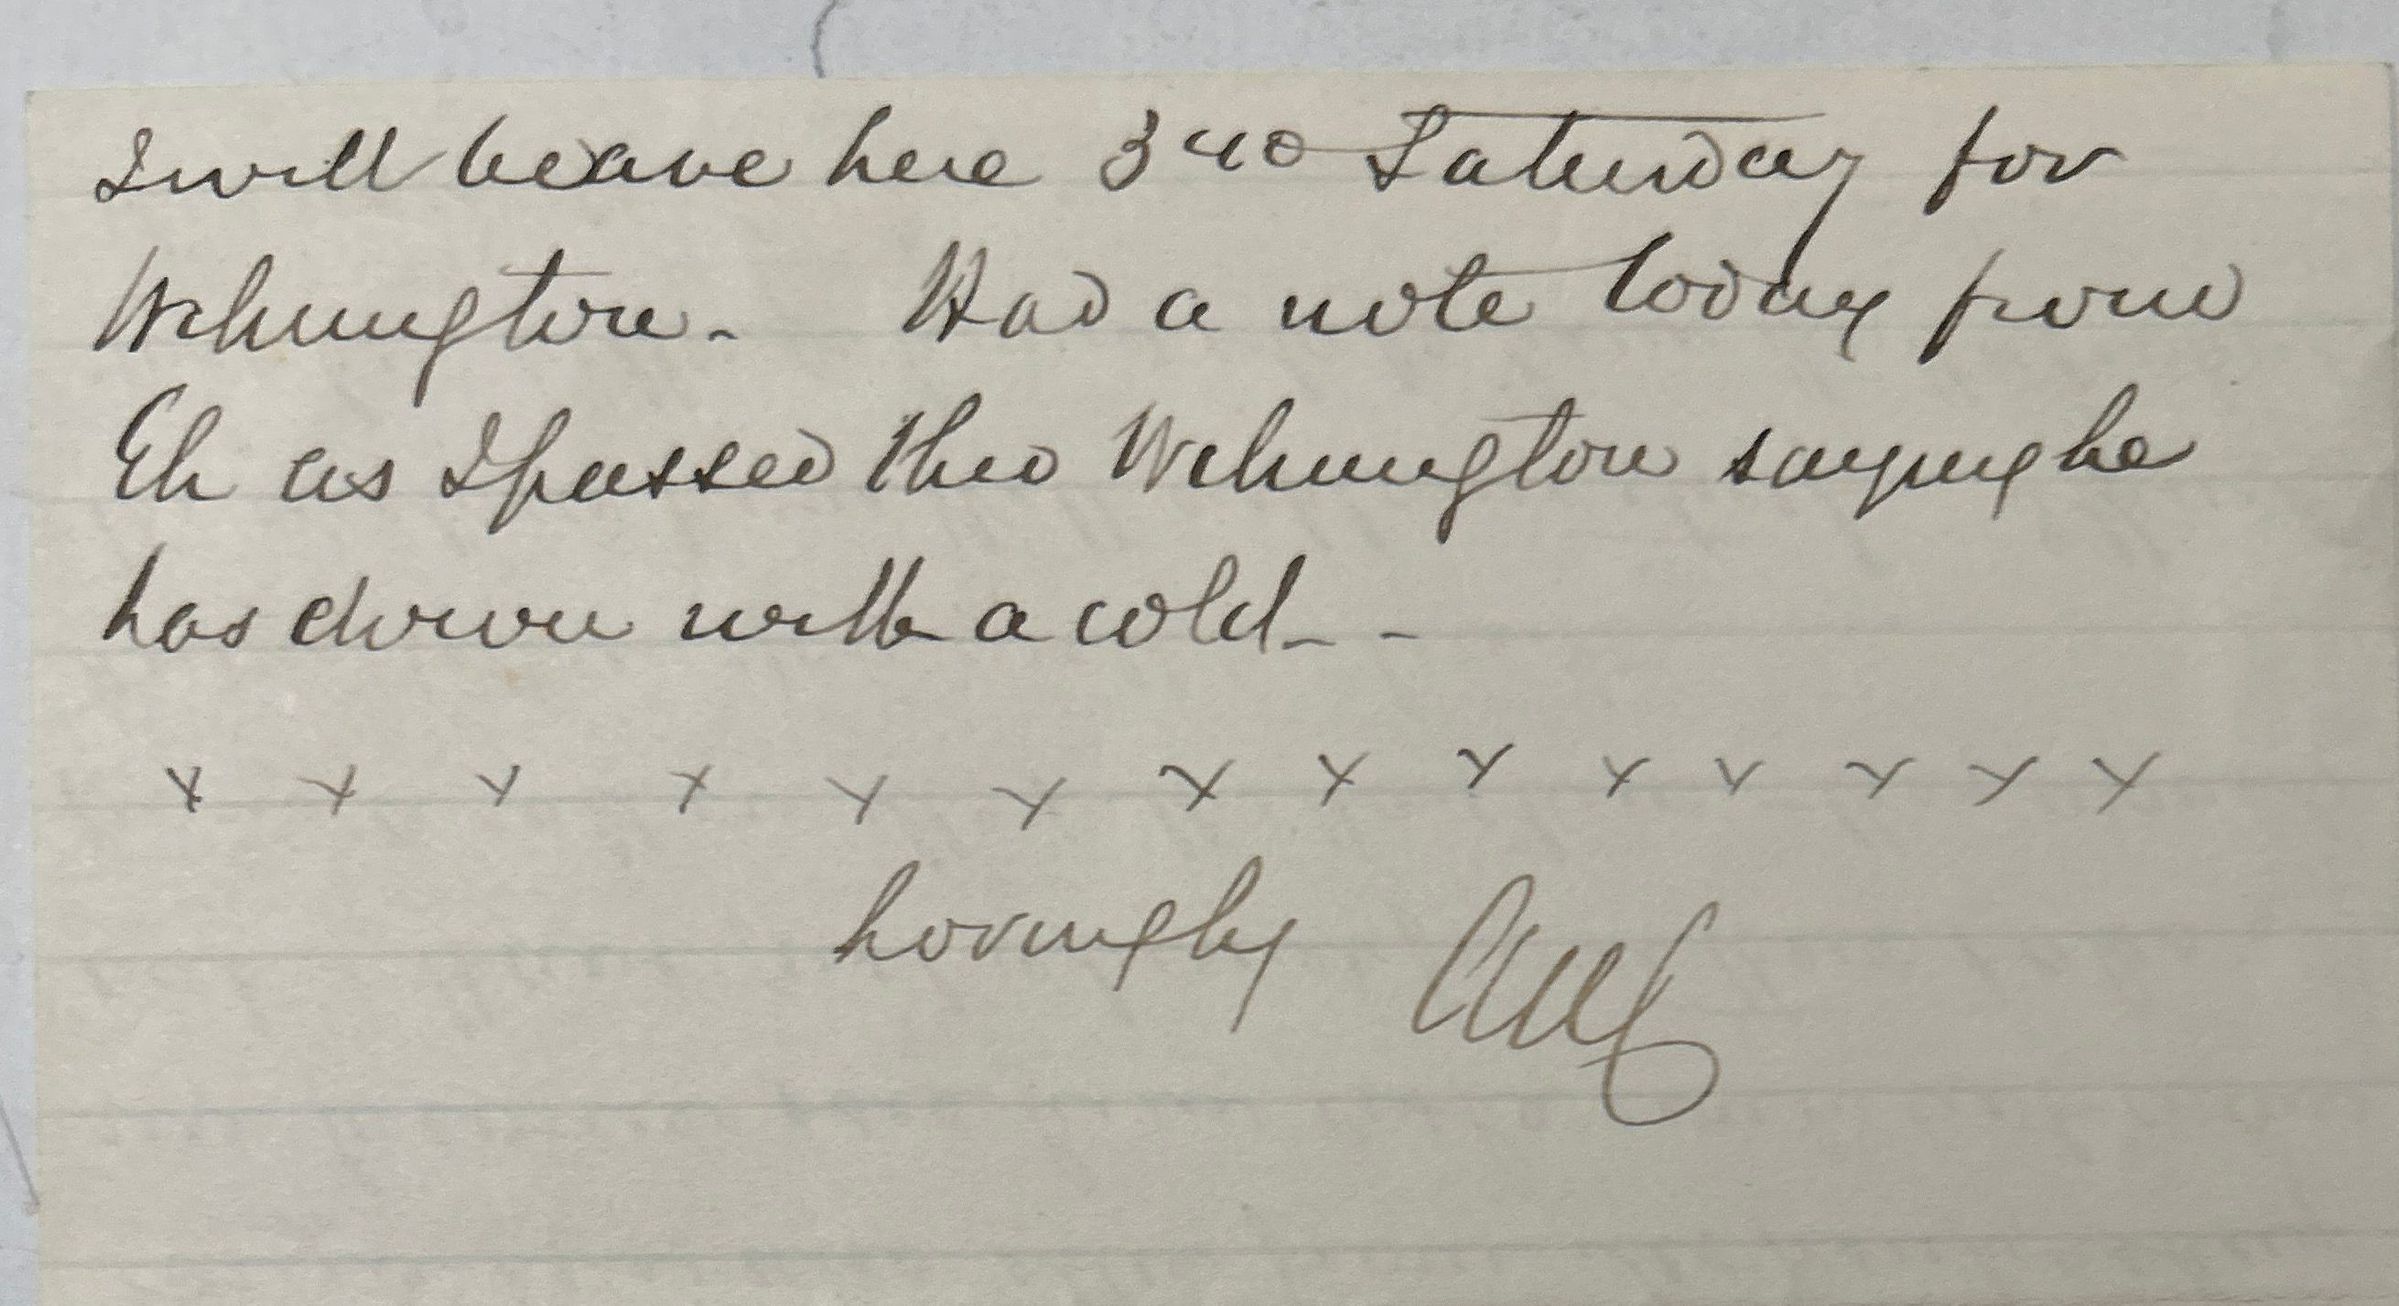 I will leave here 3 40 Saturday for
Wilmington. Had a note today from
Eli as I passed thro Wilmington saying he
has down with a cold - -
x x x x x x x x x x x x x x
Lovingly